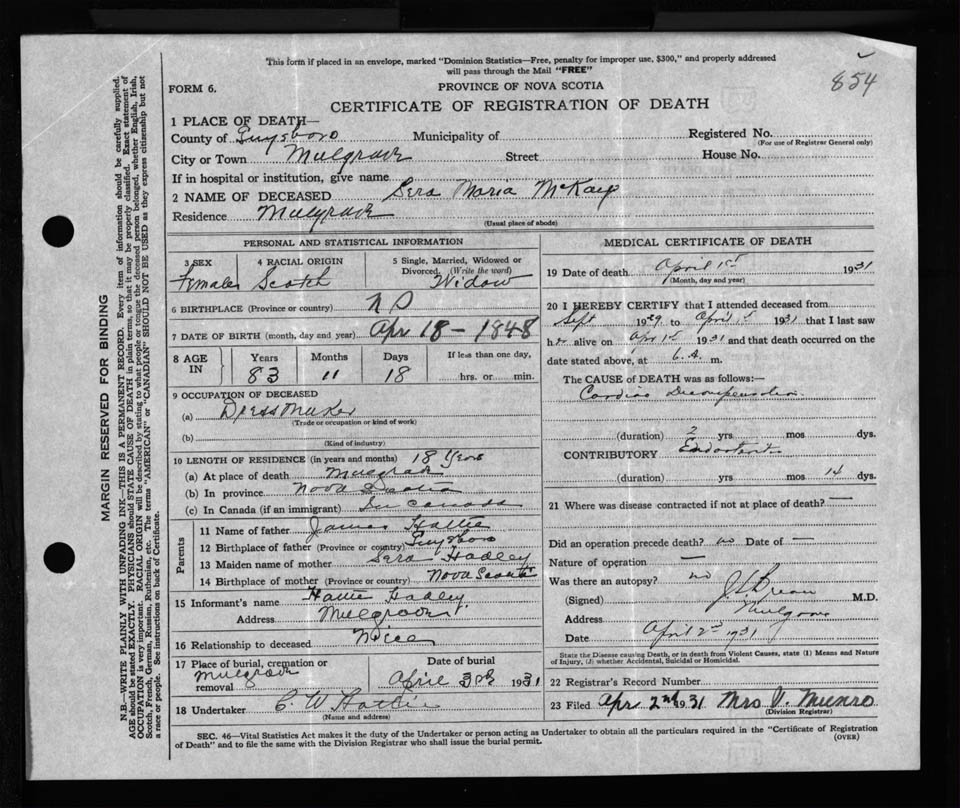 This form if placed in an envelope, marked "Dominion Statistics—Free, penalty for improper use, $300," and properly addressed
will pass through the Mail "FREE"
854
FORM 6.
PROVINCE OF NOVA SCOTIA
CERTIFICATE OF REGISTRATION OF DEATH
1 PLACE OF DEATH—
County of Guysboro Municipality of Registered No.
(For use of Registrar General only)
City or Town Mulgrave Street House No.
If in hospital or institution, give name
2 NAME OF DECEASED Sera Maria McKay
Residence Mulgrave
(Usual place of abode)
PERSONAL AND STATISTICAL INFORMATION
3 SEX 4 RACIAL ORIGIN 5 Single, Married, Widowed or
Divorced. (Write the word)
Female Scotch Widow
6 BIRTHPLACE (Province or country) N S
7 DATE OF BIRTH (month, day and year) Apr 18 - 1848
8 AGE IN Years Months Days If less than one day,
83 11 18 hrs. or min.
9 OCCUPATION OF DECEASED
(a) Dressmaker
(Trade or occupation or kind of work)
(b)
(Kind of industry)
10 LENGTH OF RESIDENCE (in years and months) 18 Years
(a) At place of death Mulgrave
(b) In province Nova Scotia
(c) In Canada (if an immigrant) In Canada
Parents
11 Name of father James Hattie
12 Birthplace of father (Province or country) Guysboro
13 Maiden name of mother Sera Hadley
14 Birthplace of mother (Province or country) Nova Scotia
15 Informant's name Hadley
Address Mulgrave
16 Relationship to deceased Niece
17 Place of burial, cremation or removal Date of burial
Mulgrave April 3rd 1931
18 Undertaker C. W Hattie
(Name and address)
MEDICAL CERTIFICATE OF DEATH
19 Date of death April 1st 1931
(Month, day and year)
20 I HEREBY CERTIFY that I attended deceased from
Sept 1929 to April 1st 1931 that I last saw
her alive on Apr 1st 1931 and that death occurred on the
date stated above, at m.
The CAUSE OF DEATH was as follows:—
Cardiac Decompensation
(duration) 2 yrs mos dys.
CONTRIBUTORY
(duration) yrs mos 14 dys.
21 Where was disease contracted if not at place of death? —
Did an operation precede death? no Date of —
Nature of operation —
Was there an autopsy? no
(Signed) M.D.
Address Mulgrave
Date April 2nd 1931
State the Disease causing Death, or in death from Violent Causes, state (1) Means and Nature
of Injury, (2) whether Accidental, Suicidal or Homicidal.
22 Registrar's Record Number
23 Filed Apr 2nd 1931 Mrs V. Munro
(Division Registrar)
SEC. 46—Vital Statistics Act makes it the duty of the Undertaker or person acting as Undertaker to obtain all the particulars required in the "Certificate of Registration
of Death" and to file the same with the Division Registrar who shall issue the burial permit.
(OVER)
MARGIN RESERVED FOR BINDING
N.B.—WRITE PLAINLY WITH UNFADING INK—THIS IS A PERMANENT RECORD. Every item of information should be carefully supplied.
AGE should be stated EXACTLY. PHYSICIANS should STATE CAUSE OF DEATH in plain terms, so that it may be properly classified. Exact statement of
OCCUPATION is very important. RACIAL ORIGIN will be described by stating to what people or tongue the deceased person belonged, whether English, Irish,
Scotch, French, German, Russian, Ruthenian, etc. The terms "AMERICAN" or "CANADIAN" SHOULD NOT BE USED as they express citizenship but not
a race or people. See instructions on back of Certificate.